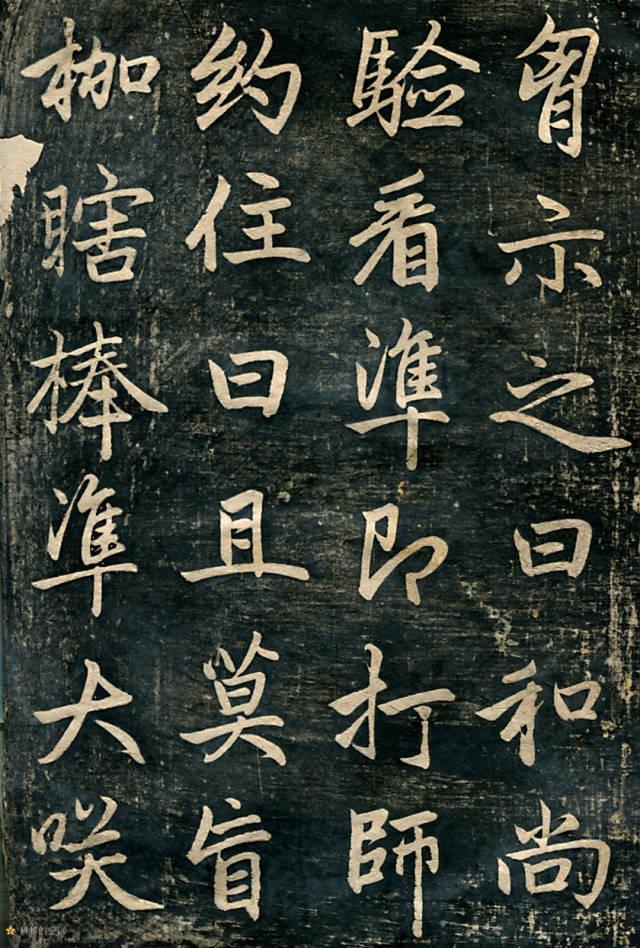 胷示之曰和尚
驗看準即打師
約住曰且莫盲
枷瞎棒準大𠯋